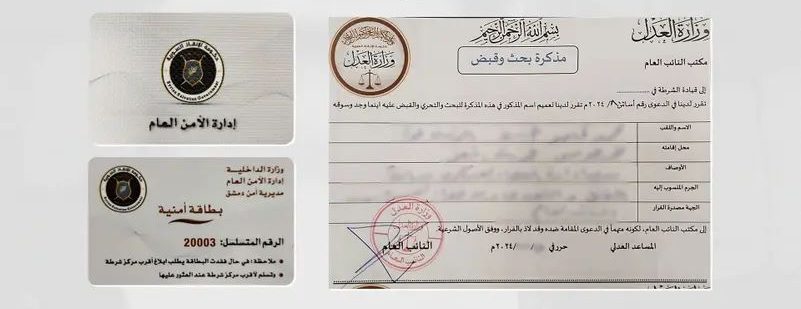 حكومة الإنقاذ السورية
Syrian Salvation Government
إدارة الأمن العام
وزارة الداخلية
إدارة الأمن العام
مديرية أمن دمشق
بطاقة أمنية
الرقم المتسلسل: 20003
ملاحظة: في حال فقدت البطاقة يطلب ابلاغ أقرب مركز شرطة
وتسلم لأقرب مركز شرطة عند العثور عليها
وزارة العدل
بسم الله الرحمن الرحيم
وزارة العدل
مذكرة بحث وقبض
مكتب النائب العام
إلى قيادة الشرطة في
تقرر لدينا في الدعوى رقم أساس / ٢٠٢٤م تقرر لدينا تعميم اسم المذكور في هذه المذكرة للبحث والتحري والقبض عليه اينما وجد وسوقه
الاسم واللقب
محل إقامته
الأوصاف
الجرم المنسوب إليه
الجهة مصدرة القرار
إلى مكتب النائب العام، لكونه متهماً في الدعوى المقامة ضده وقد لاذ بالفرار، ووفق الأصول الشرعية.
المساعد العدلي
حرر في / /٢٠٢٤م
النائب العام
وزارة العدل
النائب العام